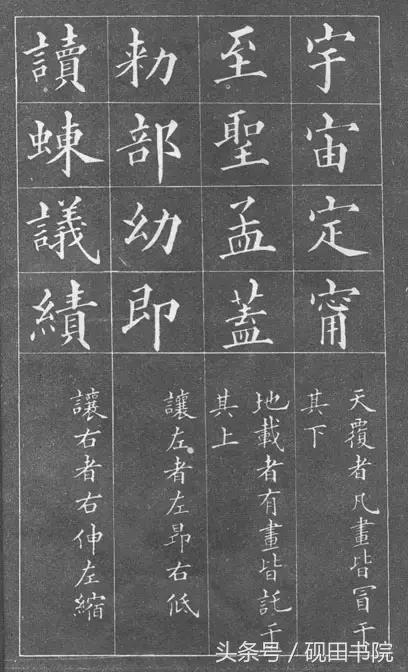 宇宙定甯
天覆者凡畫皆冒于
其下
至聖孟蓋
地載者有畫皆託于
其上
勑部幼即
讓左者左昂右低
讀蝀議績
讓右者右伸左縮
头条号／砚田书院